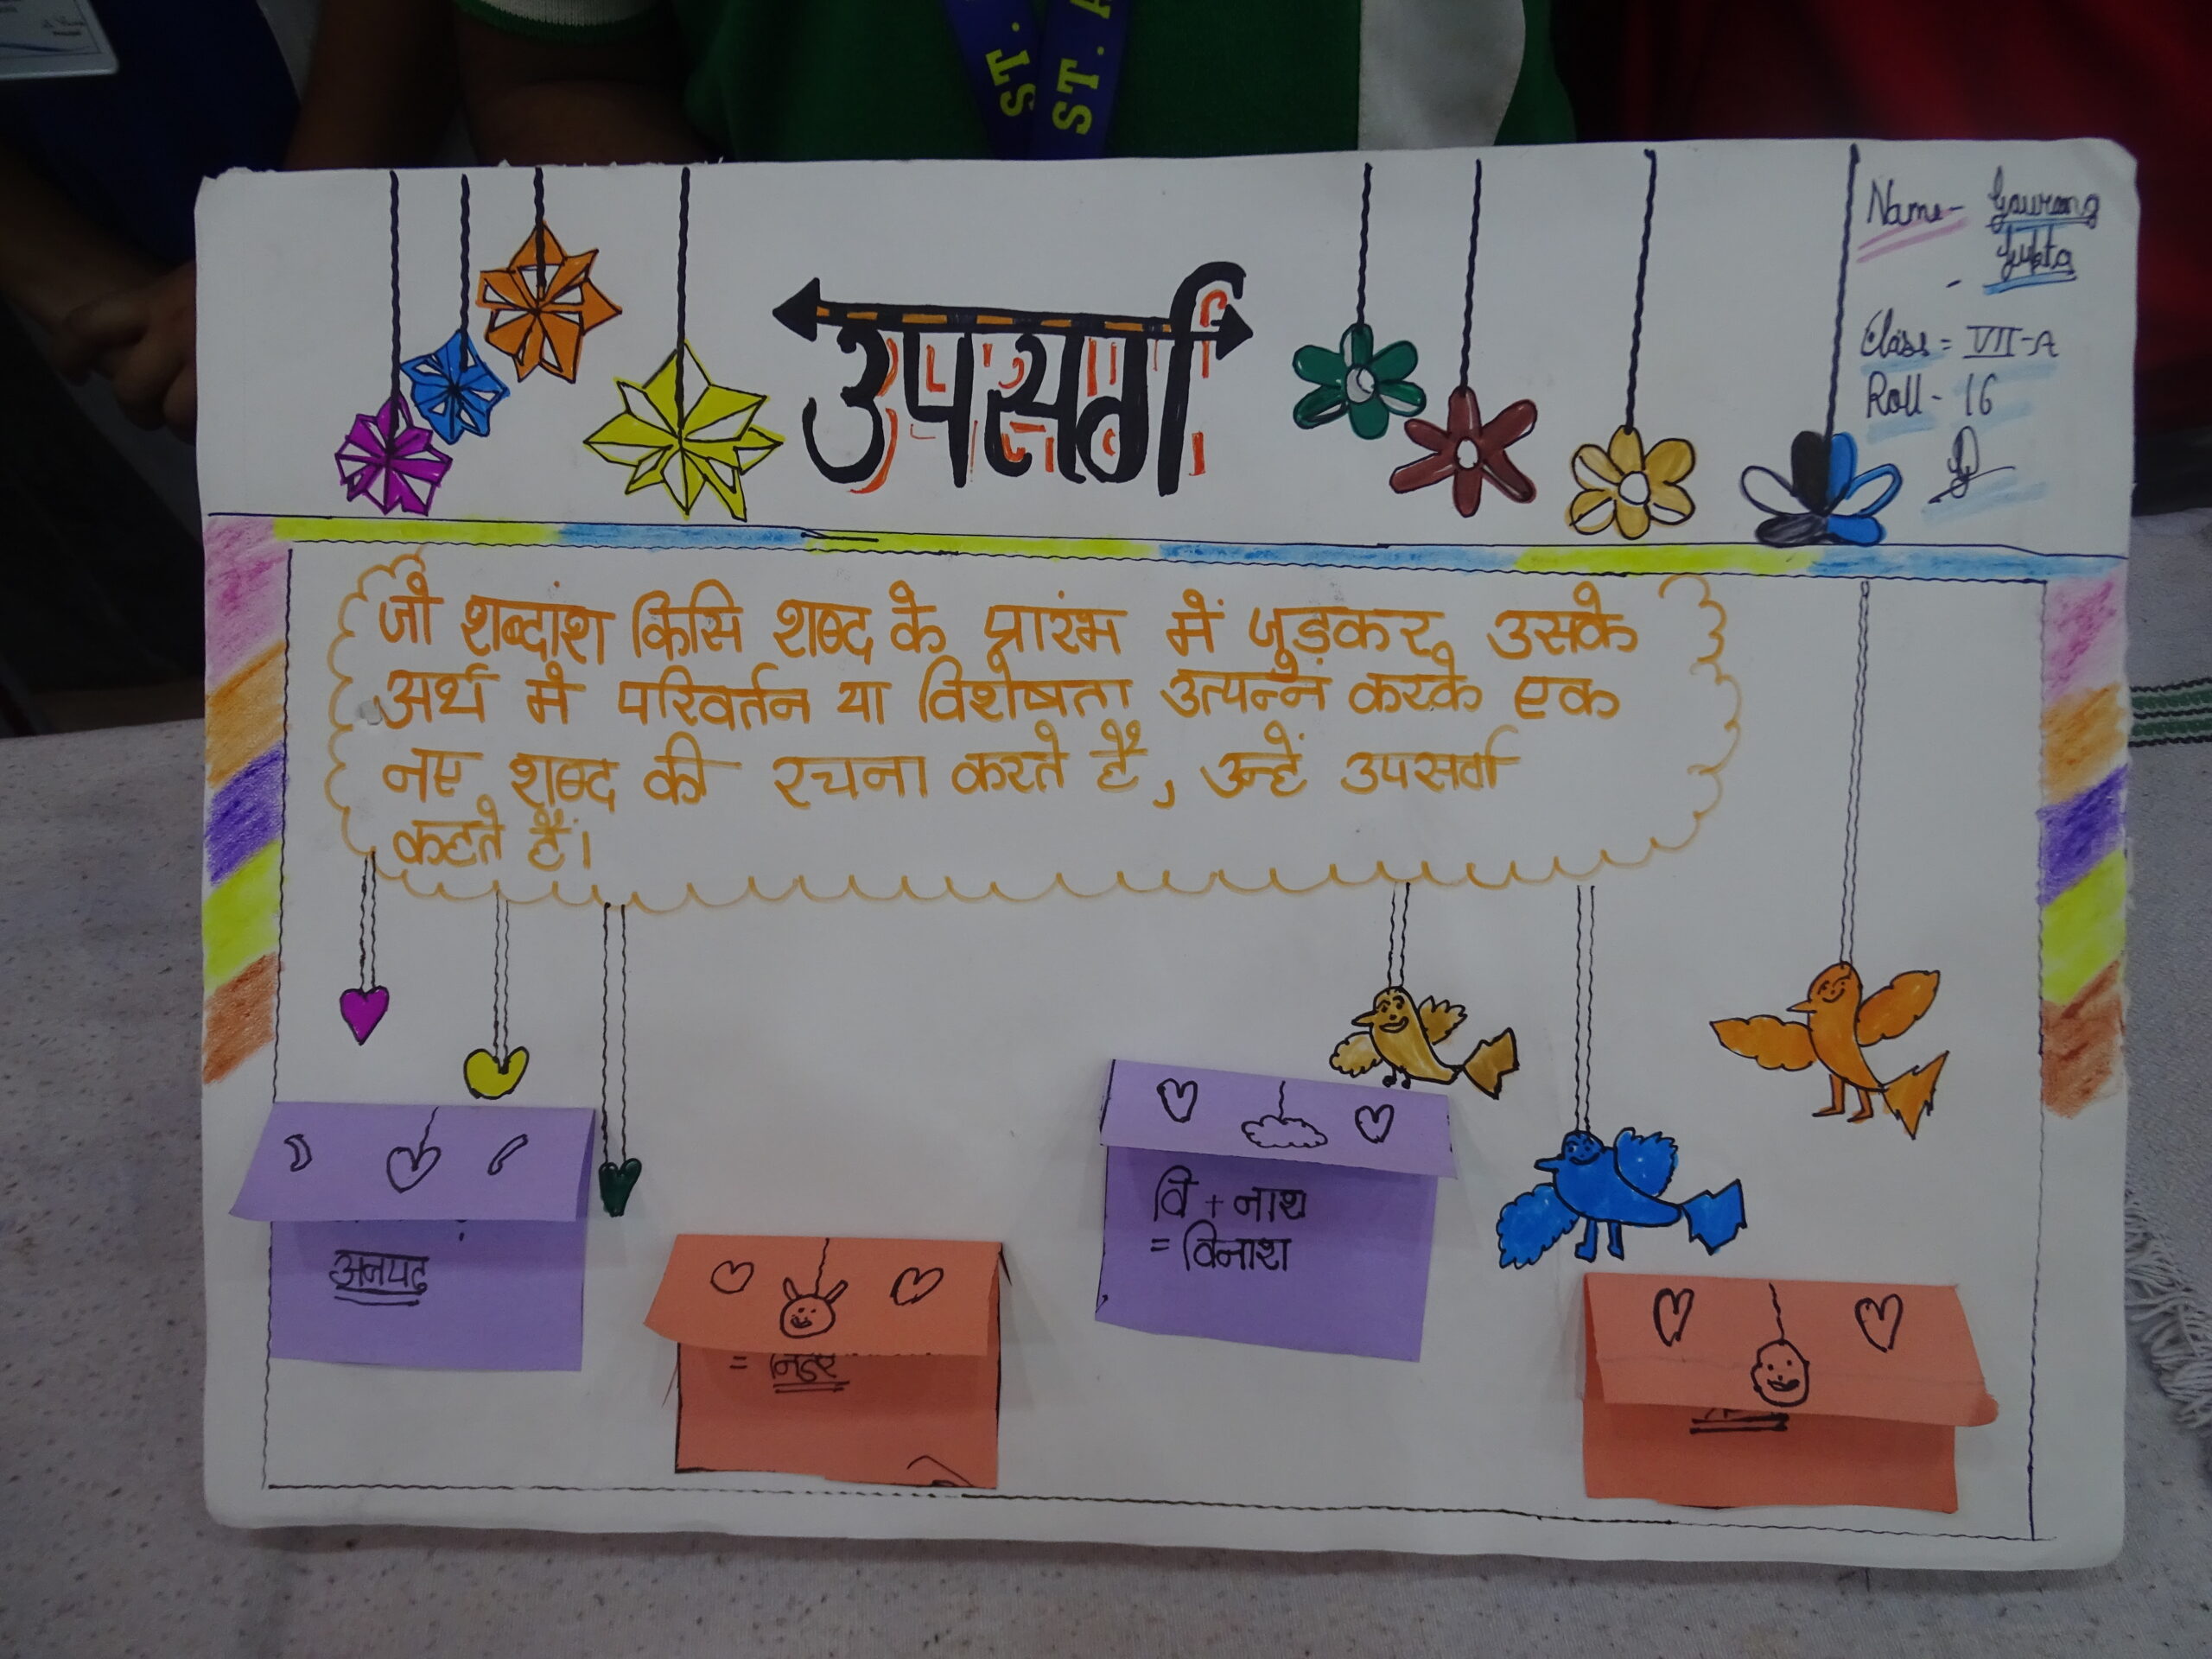 ST.
ST. A
Name- Gaurang
Gupta
Class = VII-A
Roll - 16
उपसर्ग
जो शब्दांश किसि शब्द के प्रारंभ में जुड़कर उसके
अर्थ मे परिवर्तन या विशेषता उत्पन्न करके एक
नए शब्द की रचना करते हैं, उन्हें उपसर्ग
कहते हैं।
अनपढ़
= निडर
वि + नाश
= विनाश